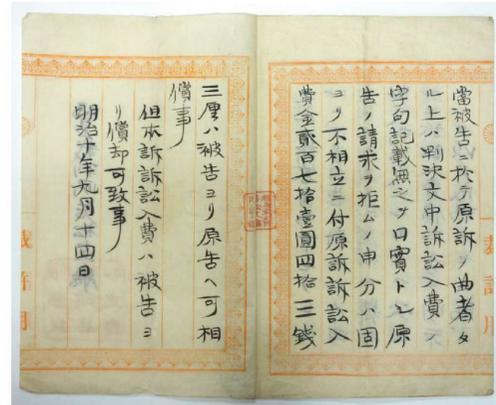 當被告ニ於テ原訴ノ曲者タ
ル上ハ判決文中訴訟入費ノ
字句記載無之ヲ口實トシ原
告ノ請求ヲ拒ムノ申分ハ固
ヨリ不相立ニ付原訴訴訟入
費金貳百七拾壹圓四拾三銭
三厘ハ被告ヨリ原告ヘ可相
償事
但本訴訴訟入費ハ被告ヨ
リ償却可致事
明治十年九月十四日